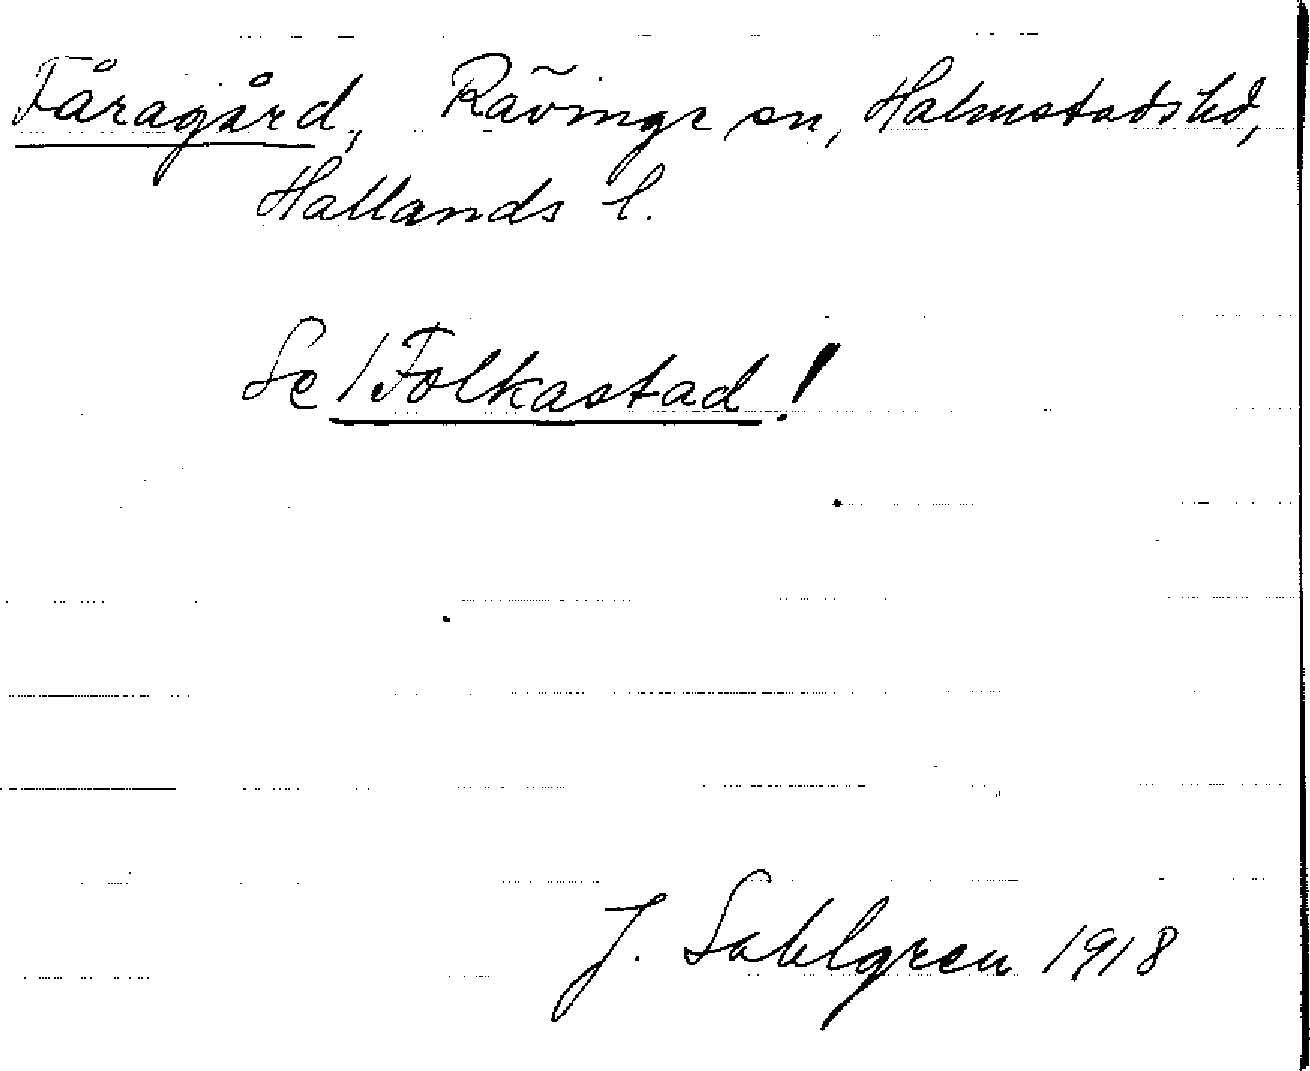 Fåragård, Rävinge sn, Halmstads hd,
Hallands l.
Se /Folkastad!
J. Sahlgren 1918